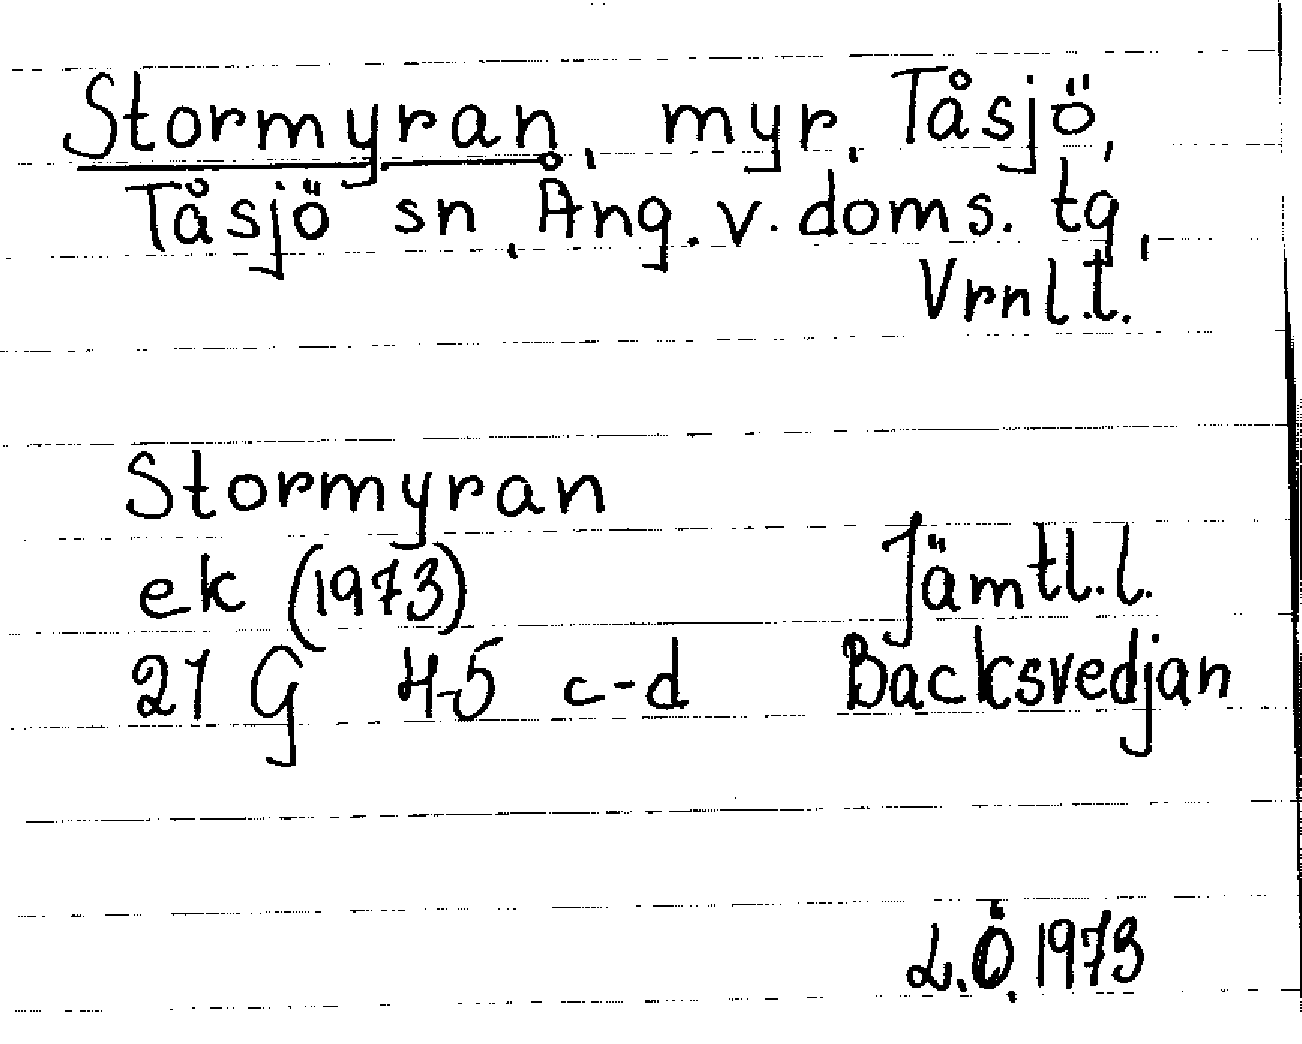 Stormyran, myr, Tåsjö,
Tåsjö sn, Ång. v. doms. tg,
Vrnl.t.
Stormyran
ek (1973) Jämtl.l.
21 G 4-5 c-d Backsvedjan
L.Ö. 1973